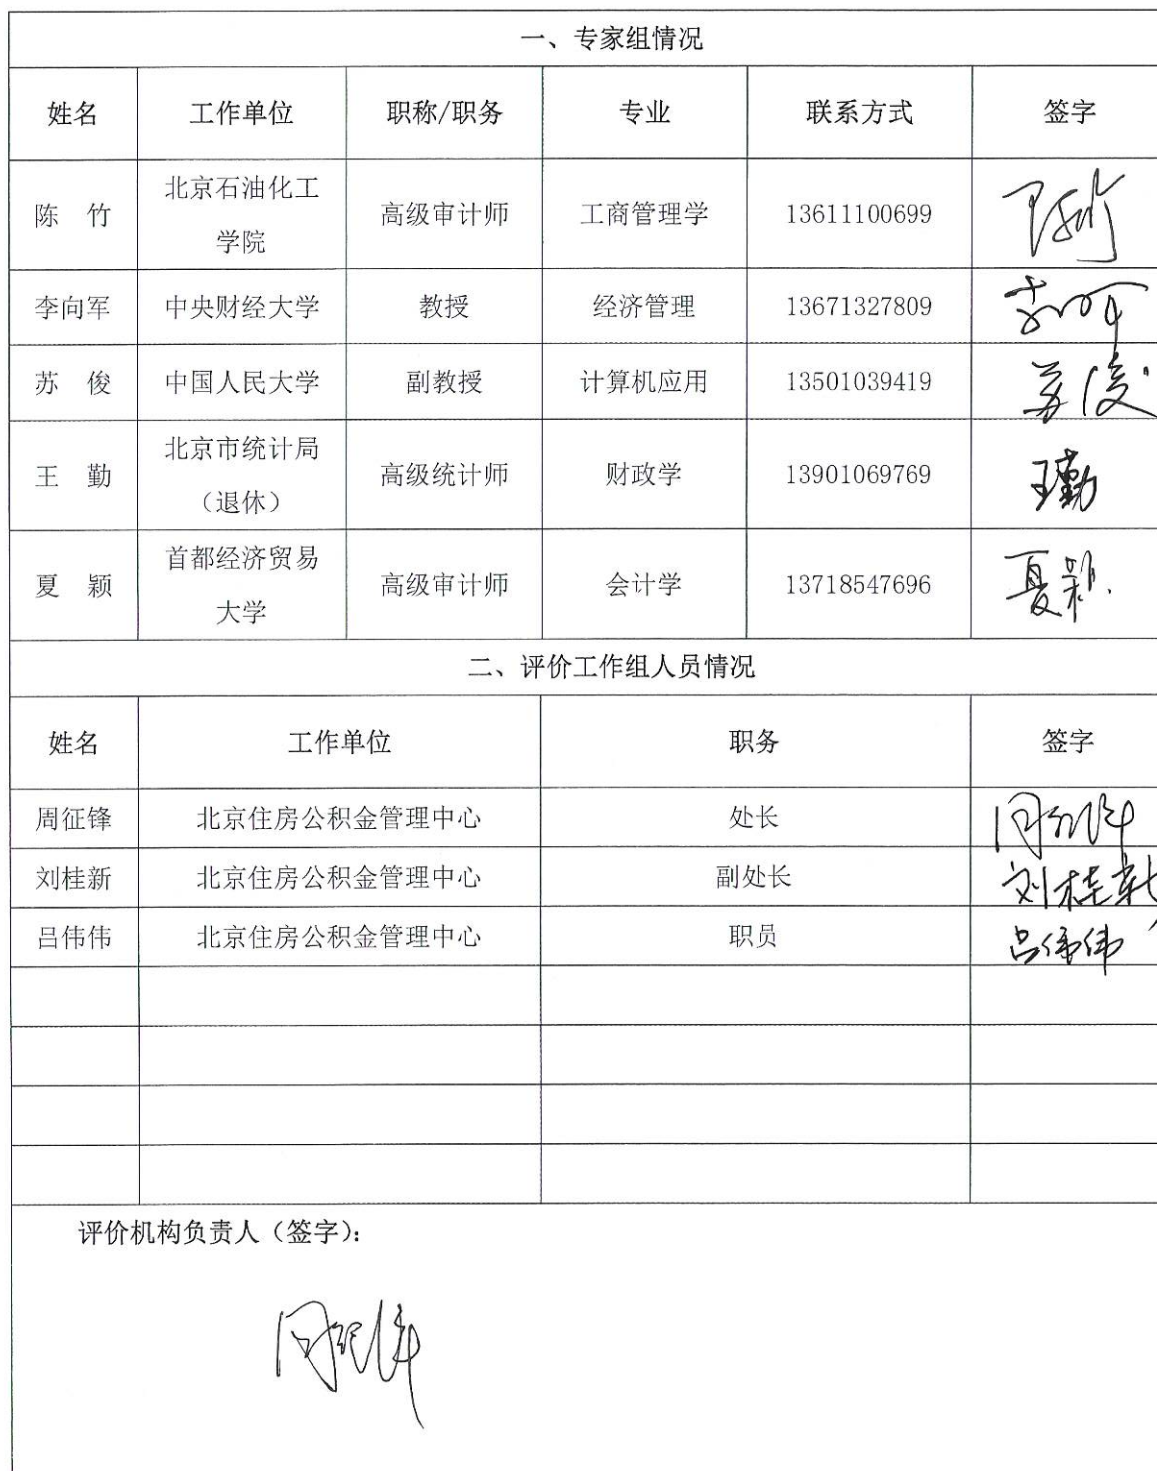 一、专家组情况
姓名 工作单位 职称/职务 专业 联系方式 签字
陈 竹 北京石油化工 高级审计师 工商管理学 13611100699 陈竹
学院
李向军 中央财经大学 教授 经济管理 13671327809
苏 俊 中国人民大学 副教授 计算机应用 13501039419 苏俊
王 勤 北京市统计局 高级统计师 财政学 13901069769 王勤
（退休）
夏 颖 首都经济贸易 高级审计师 会计学 13718547696 夏颖
大学
二、评价工作组人员情况
姓名 工作单位 职务 签字
周征锋 北京住房公积金管理中心 处长 周征锋
刘桂新 北京住房公积金管理中心 副处长 刘桂新
吕伟伟 北京住房公积金管理中心 职员 吕伟伟
评价机构负责人（签字）：
周征锋